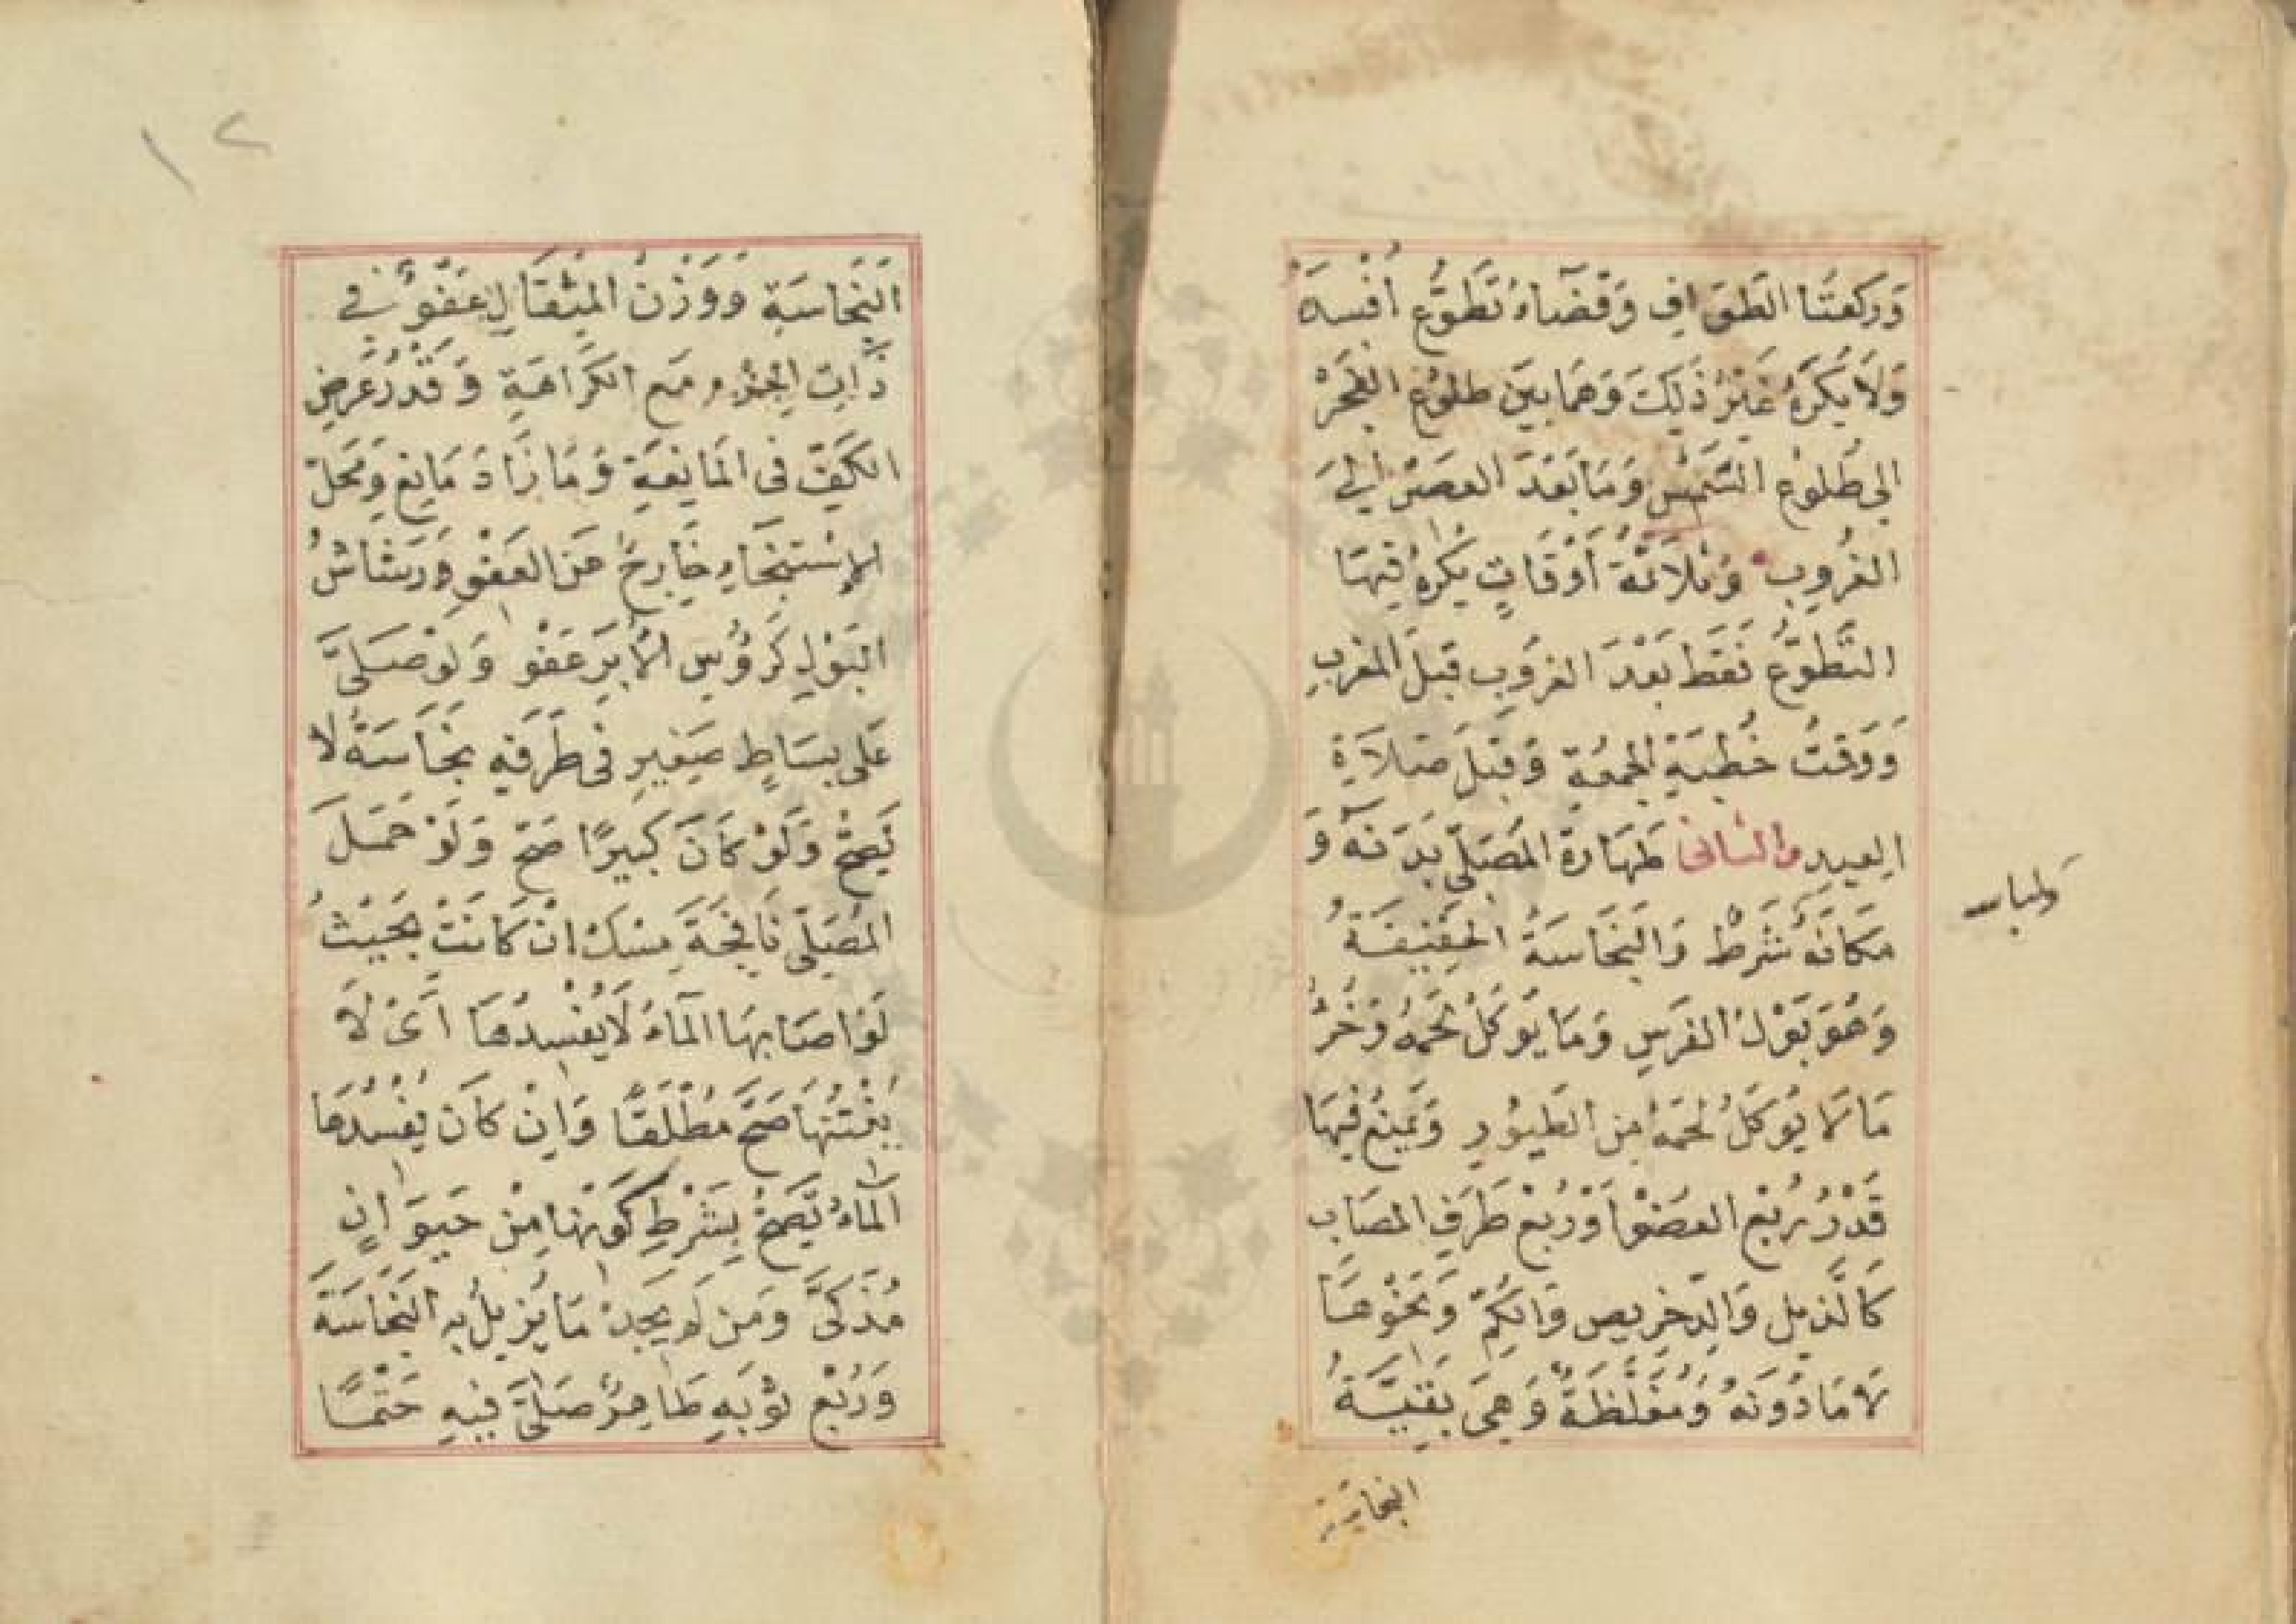 وَرَكعَتَا الطَوَافِ وَقَضَآءُ تَطَوُّعٍ اُفْسِدَ
وَلَا يُكرَهُ غَيْرُ ذَلِكَ وَهُمَا بَيْنَ طلُوُعِ الفَجْرِ
اِلى طُلُوْعِ الشَّمْسِ وَمَا بَعْدَ العَصْرِ اِلىَ
الغُرُوبِ وَثَلَاثَةُ أَوْقَاتٍ يُكْرَهُ فِيْهَا
التَّطَوُّعُ فَقَط بَعْدَ الغرُوبِ قَبْلَ المَغربِ
وَوَقتُ خُطبَةِ الجمُعَةِ وَقَبْلَ صَلَاَةِ
العِيدِ والثانى طَهَارَة المُصَلّى بَدَنهَ وَ
مَكَانَهُ شَرطٌ وَالنَجَاسَةُ الخَفِيْفَةُ
وَهُوَ بَوْلُ الفَرَسِ وَمَا يُوكَلُ لَحْمُهُ وَخُرْءُ
مَا لَا يُوكَلُ لَحْمُهُ مِن الطُيُورِ وَيُمْنَعُ فِيهَا
قَدْرُ رُبْعِ العضْوِ اَوْ رُبْعِ طَرَفِ المصَابِ
كَالذيلِ وَالدِّخرِيصِ وَالكُمِّ وَنَحْوِهَا
لَا مَا دُوْنَهُ وَمُغَلَّظَةٌ وَهِىَ بَقِيَّةُ
وَلباسه
النجاسة
١٢
النَجَاسَةِ وَوَزْنُ المِثْقَالِ عَفْوٌ فِى
ذَاتِ الجرْمِ مَع الكَرَاهَةِ وَقَدْرُ عَرضِ
الكَفِّ فى المَايِعَةِ وَمَا زَادَ مَانِع وَمَحَلّ
الاِسْتِنْجَاءِ خَارِجٌ عَنِ العَفْوِ وَرَشَاشُ
البَوْلِ كَرُؤُسِ الاُبَرِ عَفْو وَلَوْ صَلَّى
عَلى بِسَاطٍ صَغِيرٍ فى طَرَفِهِ نَجَاسَةٌ لَا
يَصِحُّ وَلَوْ كَانَ كَبِيرًا صَحَّ وَلَوْ حَمَلَ
المُصَلّى نَافِجَةَ مِسْكٍ اِنْ كَانَتْ بِحَيْثُ
لَوْ اصَابهَا المَآءُ لَا يُفْسِدُهَا أَىْ لَا
يُفْتِتُهَا صَحَّ مُطْلَقًا وَاِنْ كَانَ يُفْسِدُهَا
المَآءُ يَّصِحُّ بِشَرْطِ كَوْنِهَا مِنْ حَيَوَانٍ
مُذَكىًّ وَمَن لَم يَجِدْ مَا يُزيلُ بِهِ النَجَاسَةَ
وَرُبْع ثَوْبَهِ طَاهِرٌ صَلَّى فِيهِ حَتْمًا